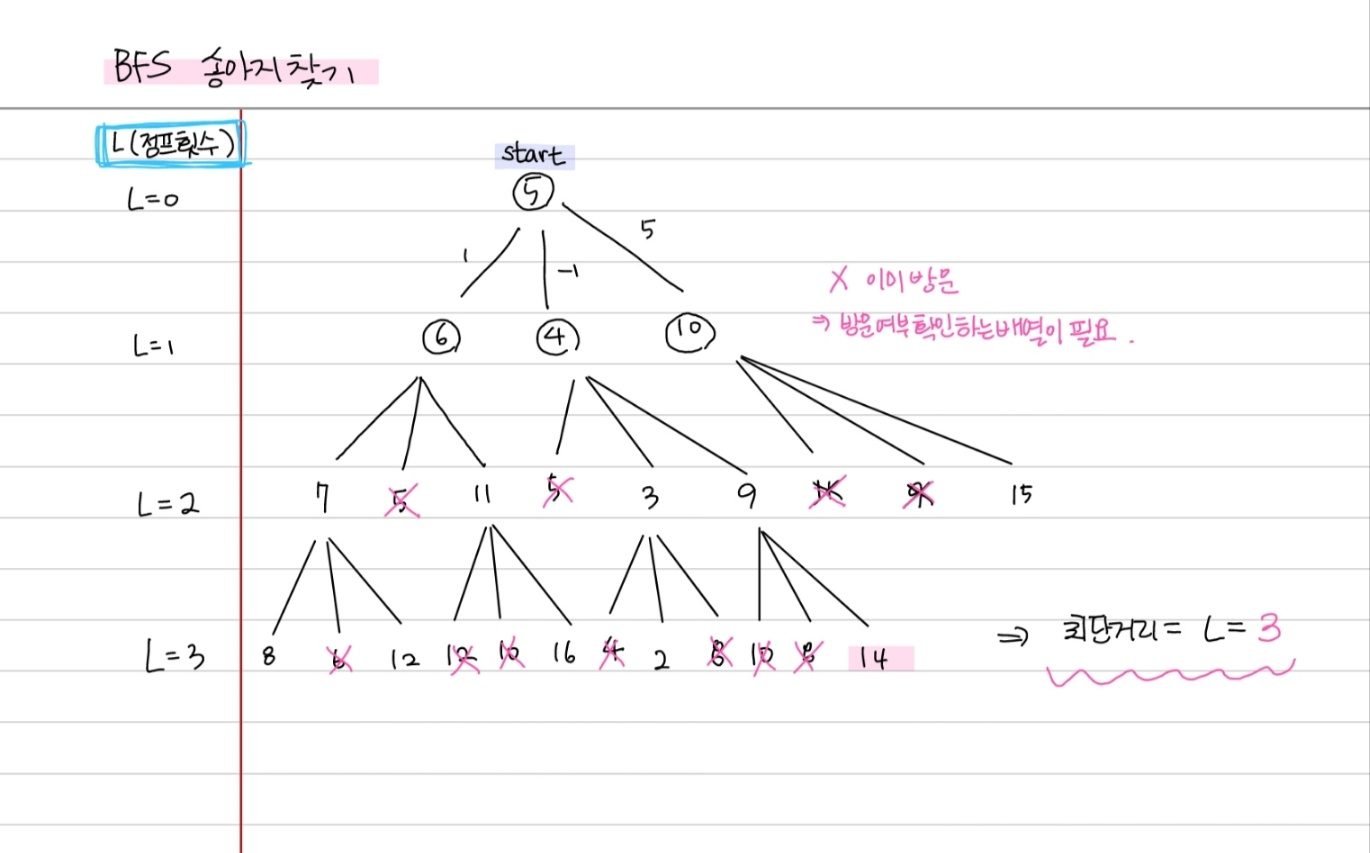 BFS 송아지찾기
L(점프횟수)
start
L=0 5
1 -1 5
X 이미방문
⇒ 방문여부확인하는배열이 필요.
L=1 6 4 10
L=2 7 5 11 5 3 9 11 9 15
L=3 8 6 12 12 10 16 4 2 8 10 8 14
⇒ 최단거리= L= 3